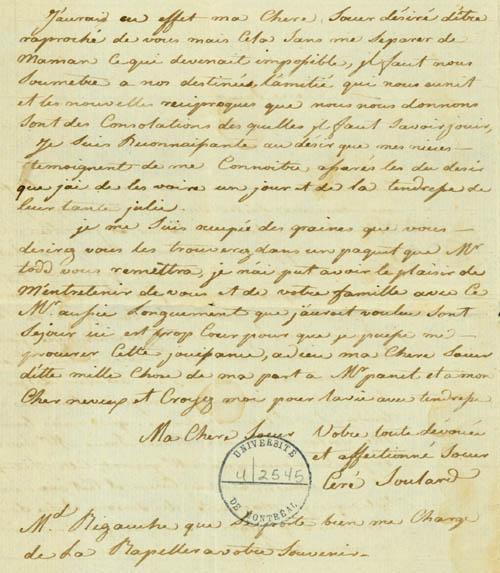 J'aurais eu effet ma Chere Soeur désiré d'être
raproché de vous mais Cela Sans me Separer de
Maman Ce qui devenait impossible, jl faut nous
Soumetre a nos destinées l'amitié qui nous unit
et les nouvelles reciproques que nous nous donnons
Sont des Consolations des quelles jl faut Savoir jouir,
Je Suis Reconnaissante au désir que mes nieces
temoignent de me Connoitre, assurés les du desir
que j'ai de les voire un jour et de la tendresse de
leur tante julie.
je me Suis occupée des graines que vous
desirez vous les trouverez dans un paquet que Mr.
todd vous remettra, je n'ai put avoir le plaisir de
M'entretenir de vous et de votre famille avec Ce
Mr. aussie Longuement que j'aurois voulue Sont
Sejour ici est trop Cour pour que je puisse me
procurer Cette jouissance, adieu ma Chere Soeur
ditte mille Chose de ma part a Mr panet et a mon
Cher neveux et Croyez moi pour la vie avec tendresse
Ma Chere Soeur Votre toute devouée
et affectionné Soeur
Ceré Soulard
UNIVERSITÉ
U 2545
DE MONTRÉAL
Md. Rigauche que Se porte bien me Charge
de La Rapeller a votre Souvenir